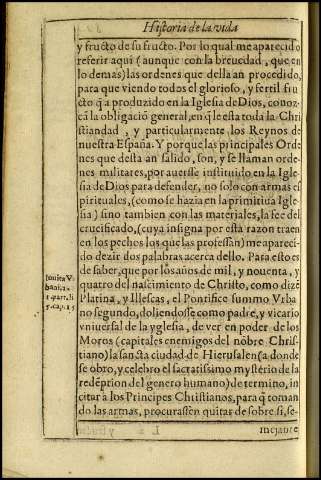 Historia de la vida
y fructo de su fructo. Por lo qual me a parecido
referir aqui (aunque con la breuedad, que en
lo demas) las ordenes que della an procedido,
para que viendo todos el glorioso, y fertil fru
cto q̃ a produzido en la Iglesia de Dios, conoz-
cã la obligaciõ general, en q̃ le esta toda la Chri
stiandad, y particularmente los Reynos de
nuestra España. Y porque las principales Orde
nes que desta an salido, son, y se llaman orde-
nes militares, por auerse instituido en la Igle-
sia de Dios para defender, no solo con armas es
pirituales, (como se hazia en la primitiua Igle-
sia) sino tambien con las materiales, la fee del
crucificado, (cuya insigna por esta razon traen
en los pechos los que las professan) me a pareci-
do dezir dos palabras acerca dello. Para esto es
de saber, que por los años de mil, y nouenta, y
quatro del nascimiento de Christo, como dizẽ
Platina, y Illescas, el Pontifice summo Vrba
no segundo, doliendosse como padre, y vicario
vniuersal de la yglesia, de ver en poder de los
Moros (capitales enemigos del nõbre Chris-
tiano) la sancta ciudad de Hierusalen (a donde
se obro, y celebro el sacratissimo mysterio de la
redẽption del genero humano) de termino, in
citar a los Principes Christianos, para q̃ toman
do las armas, procurassen quitar de sobre si, se-
mejante